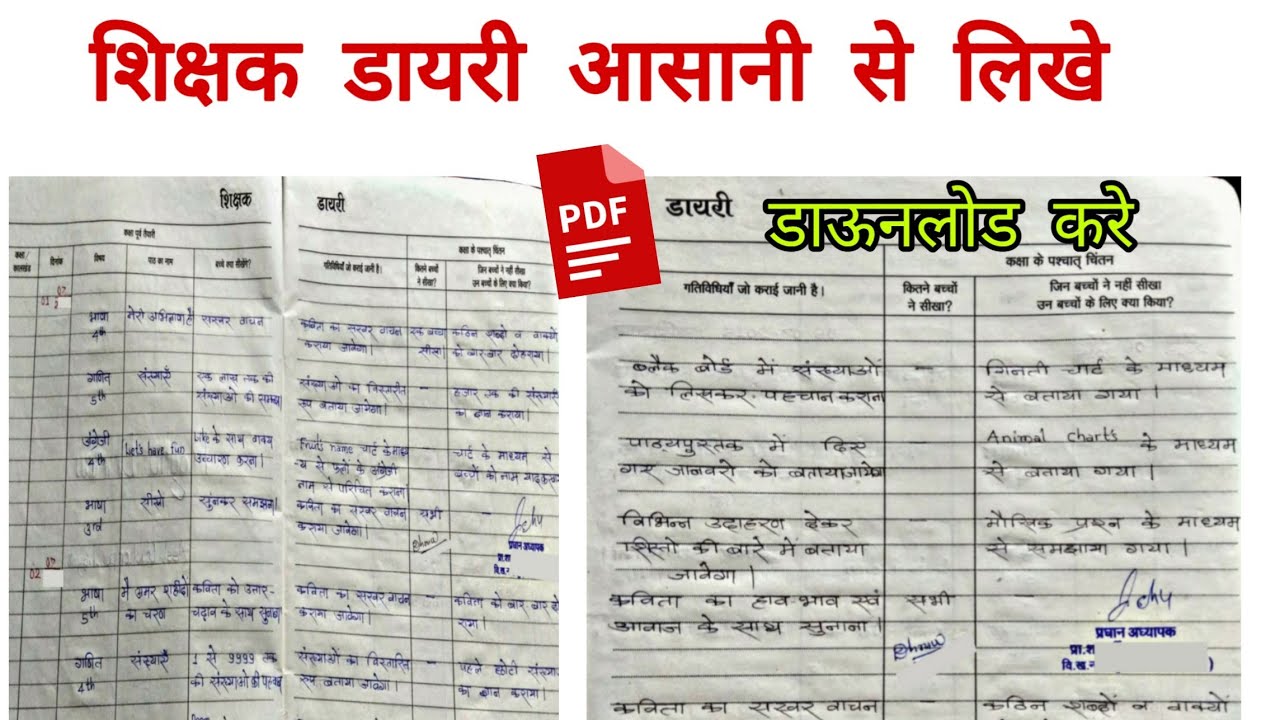 शिक्षक डायरी आसानी से लिखे
PDF
डाऊनलोड करे
शिक्षक डायरी
कक्षा पूर्व तैयारी
कक्षा के पश्चात् चिंतन
कक्षा / कालखंड
दिनांक
विषय
पाठ का नाम
बच्चे क्या सीखेंगे?
गतिविधियाँ जो कराई जानी है।
कितने बच्चों ने सीखा?
जिन बच्चों ने नहीं सीखा उन बच्चों के लिए क्या किया?
01 07
भाषा 4th
सस्वर वाचन
कविता का सस्वर वाचन
कराया जावेगा।
गणित 5th
संख्याएँ
एक लाख तक की
संख्याओं का विस्तारित
रूप बताया जावेगा।
अंग्रेजी 4th
Let's have fun
Fruits name चार्ट के
चार्ट के माध्यम से
भाषा
सीखो
सुनकर समझना
कविता का सस्वर वाचन
सभी
कराया जावेगा।
प्रधान अध्यापक
02 07
भाषा 5th
कविता को उतार-
चढ़ाव के साथ
कविता का सस्वर वाचन
कराया जावेगा।
कविता को बार बार
गणित 4th
संख्याएँ
1 से 9999 तक
की संख्याओं की
संख्याओं का विस्तारित
रूप बताया जावेगा।
पहले छोटी
का ज्ञान कराया।
डायरी
कक्षा के पश्चात् चिंतन
गतिविधियाँ जो कराई जानी है।
कितने बच्चों
ने सीखा?
जिन बच्चों ने नहीं सीखा
उन बच्चों के लिए क्या किया?
ब्लैक बोर्ड में संख्याओं
को लिखकर पहचान कराना
गिनती चार्ट के माध्यम
से बताया गया।
पाठ्यपुस्तक में दिए
गए जानवरो को बतायाजावेगा
Animal charts के माध्यम
से बताया गया।
विभिन्न उदाहरण देकर
रिश्तो की बारे में बताया
जावेगा।
मौखिक प्रश्न के माध्यम
से समझाया गया।
कविता का हाव-भाव एवं
सभी
आवाज के साथ सुनाना।
प्रधान अध्यापक
प्रा.शा
वि.ख.
कविता का सस्वर वाचन
कठिन शब्दों व वाक्यों